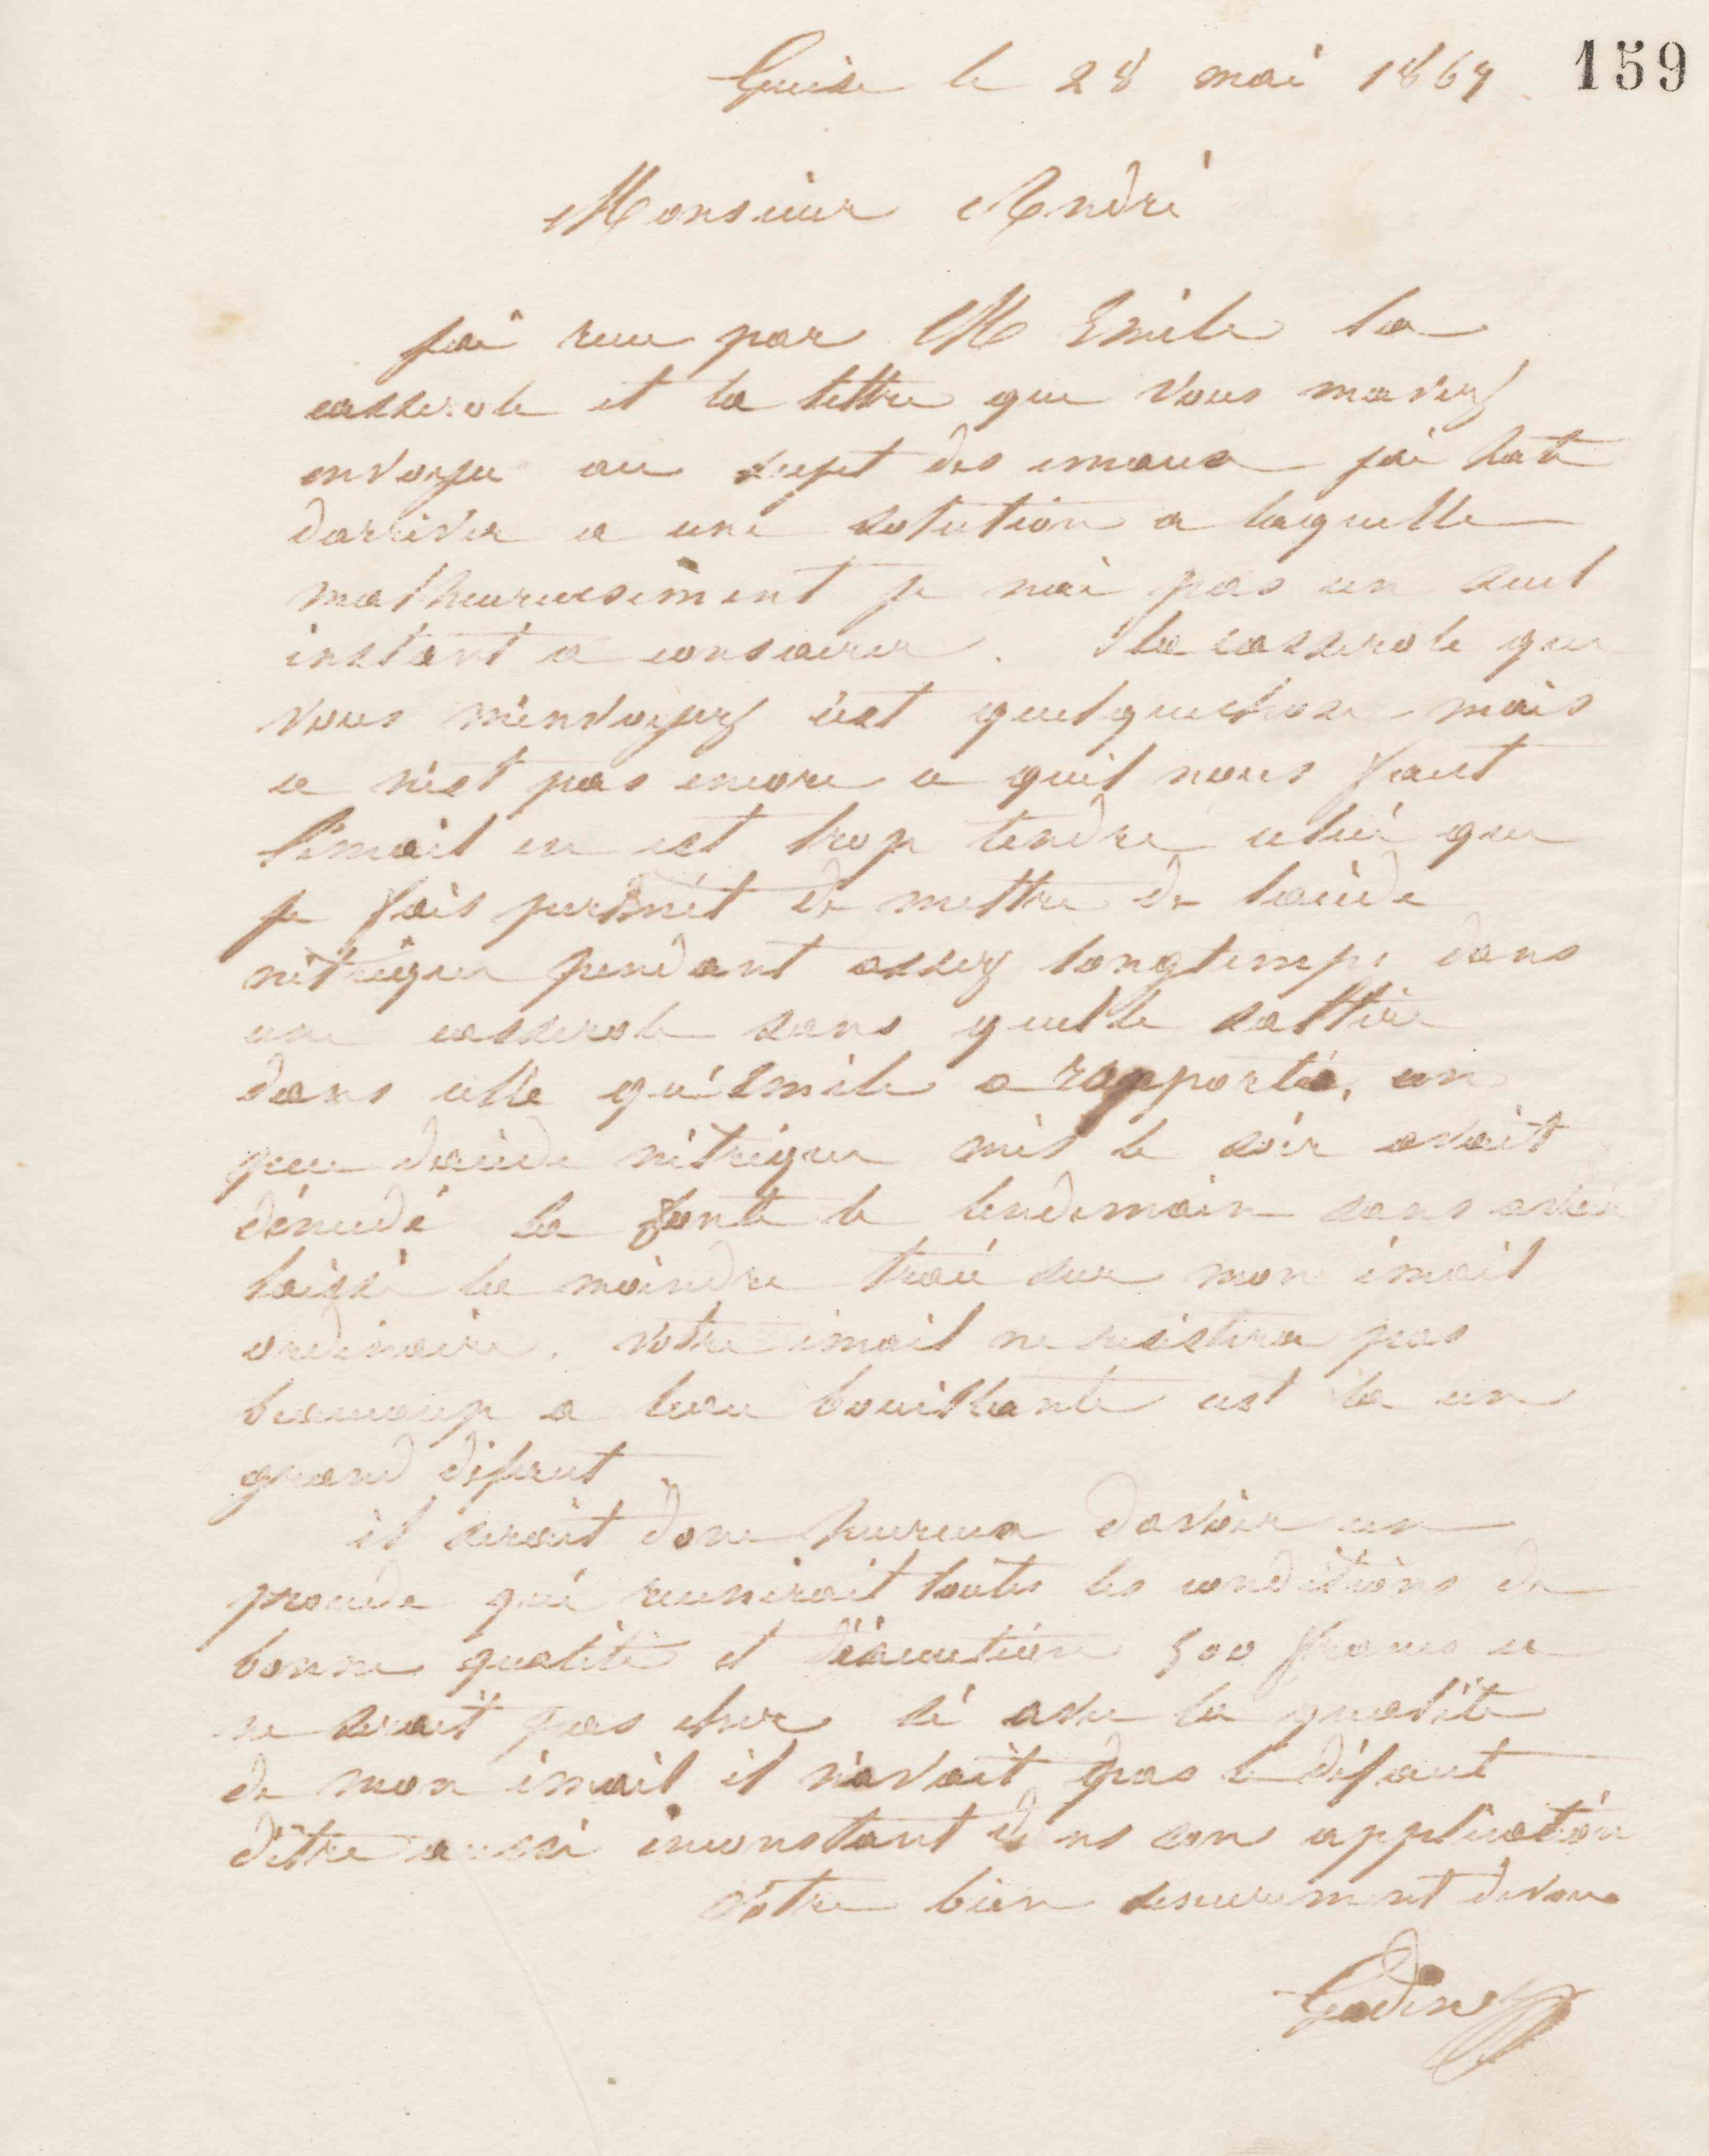 159
Guise le 28 mai 1869
Monsieur André
jai recu par M Emile la
casserole et la lettre que vous mavez
envoyée au sujet des emaux jai hate
darriver a une solution a laquelle
malheureusement je nai pas un seul
instant a consacrer. la casserole que
vous m'envoyez cest quelquechose mais
ce n'est pas encore ce quil nous faut
l'émail en est trop tendre celui que
je fais permet de mettre de lacide
nitrique pendant assez longtemps dans
une casserole sans quelle saltère
dans celle qu'Emile a rapportée, un
peu dacide nitrique mis le soir avait
dénudé la fonte le lendemain sans avoir
laissé la moindre trace sur mon émail
ordinaire. votre émail ne resistera pas
beaucoup a leau bouillante cest la un
grand defaut
il serait donc heureux davoir un
procede qui reunirait toutes les conditions de
bonne qualité et d'éxecution 500 francs ce
ne serait pas cher si avec la qualité
de mon émail il n'avait pas le défaut
d'être aussi inconstant dans son application
Votre bien sincerement devoué
Godin